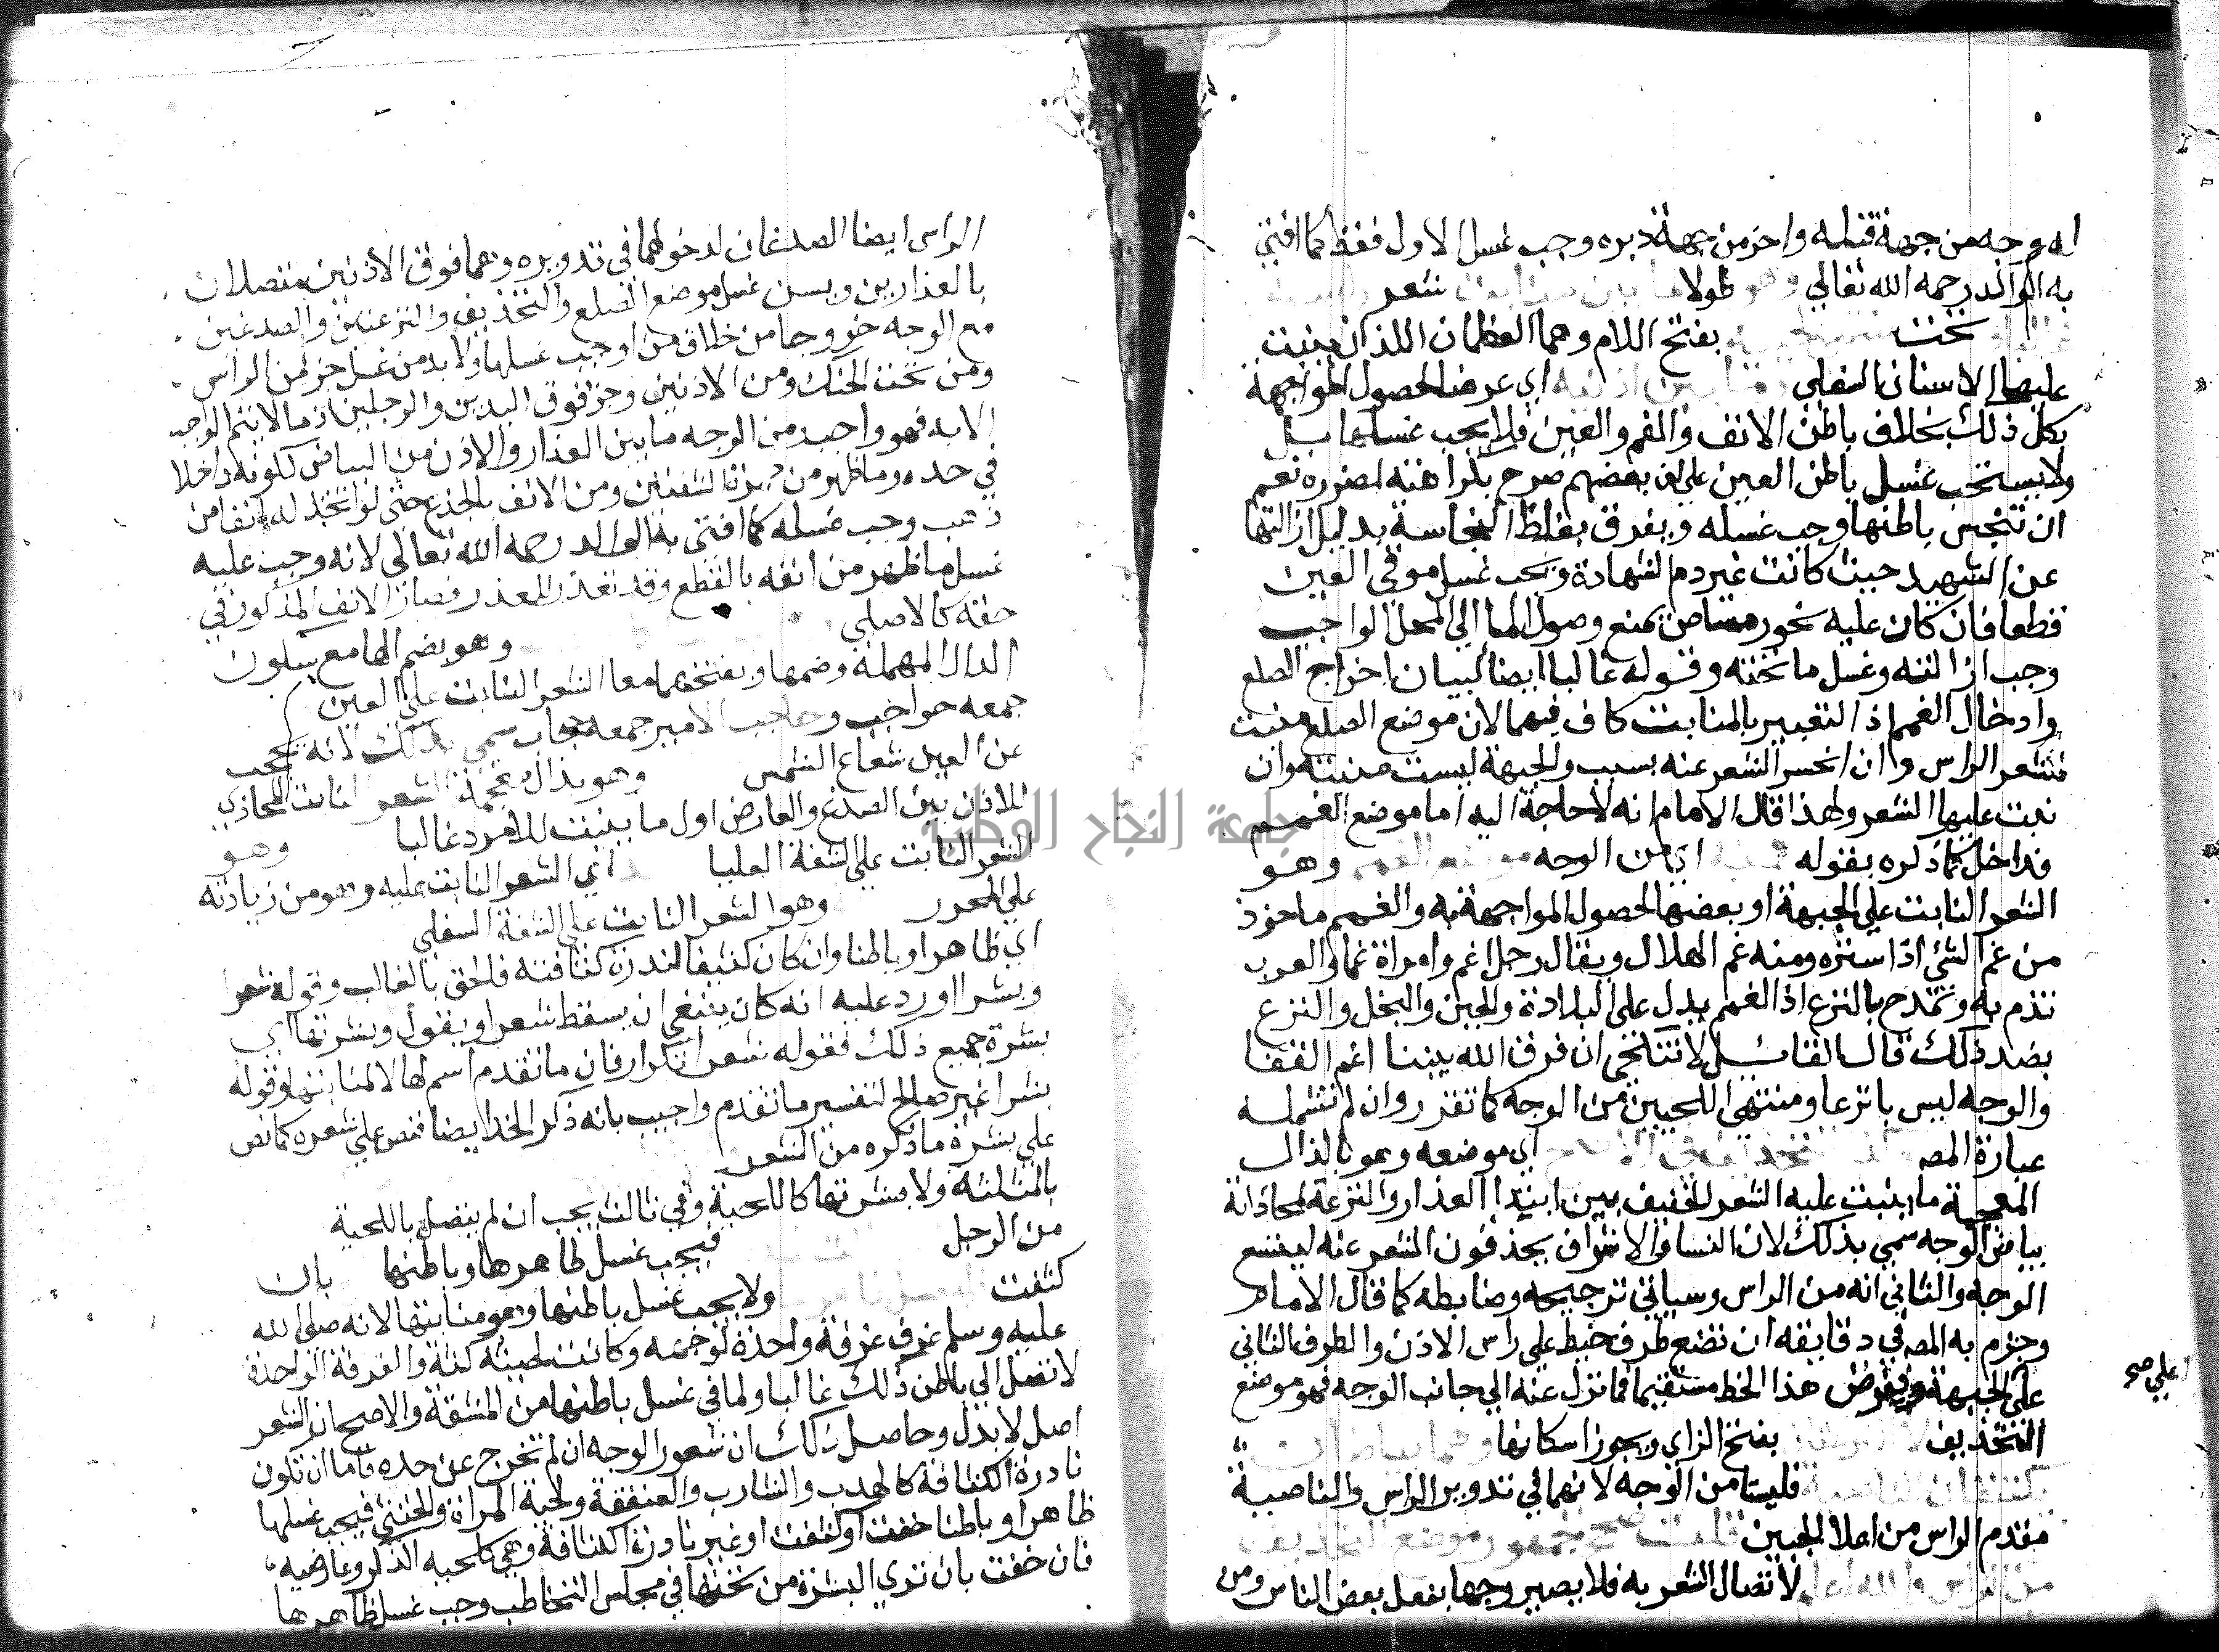 له وجه من جهة قبله واخر من جهة دبره وجب غسل الاول فقط كما افتي
به الوالد رحمه الله تعالي وهو طولا ما بين منابت شعر
تحت بفتح اللام وهما العظمان اللذان ينبت
عليهما الاسنان السفلي وما بين اذنيه اي عرضا لحصول المواجهة
بكل ذلك بخلاف باطن الانف والفم والعين فلا يجب غسلها بل
ولا يستحب غسل باطن العين علي ان بعضهم صرح بكراهته لضرره نعم
ان تنجس باطنها وجب غسله ويفرق بغلظ النجاسة بدليل ازالتها
عن الشهيد حيث كانت غير دم الشهادة ويجب غسل موق العين
قطعا فان كان عليه نحو رمص يمنع وصول الماء الي المحل الواجب
وجب ازالته وغسل ما تحته وقوله غالبا ايضا لبيان اخراج الصلع
وادخال الغمم اذ التعبير بالمنابت كاف فيهما لان موضع الصلع منبت
شعر الراس وان انحسر الشعر عنه بسبب والجبهة ليست منبته وان
نبت عليها الشعر ولهذا قال الامام انه لا حاجة اليه اما موضع الغمم
فداخل كما ذكره بقوله فمنه اي من الوجه موضع الغمم وهو
الشعر النابت علي الجبهة او بعضها لحصول المواجهة به والغمم ماخوذ
من غم الشئ اذا ستره ومنه غم الهلال ويقال رجل اغم وامراة غما والعرب
تذم به وتمدح بالنزع اذ الغمم يدل علي البلادة والجبن والبخل والنزع
بضد ذلك قال القائل لا تنكحي ان فرق الله بيننا اغم القفا
والوجه ليس بانزعا ومنتهي اللحيين من الوجه كما تقرر وان لم تشمله
عبارة المص وكذا التحذيف في الاصح اي موضعه وهو بالذال
المعجمة ما ينبت عليه الشعر الخفيف بين ابتدا العذار والنزعة لمحاذاته
بياض الوجه سمي بذلك لان النسا والاشراف يحذفون الشعر عنه ليتسع
الوجه والثاني انه من الراس وسياتي ترجيحه وضابطه كما قال الامام
وجزم به المص في دقايقه ان تضع طرف خيط علي راس الاذن والطرف الثاني
علي الجبهة ويفرض هذا الخط مستقيما فما نزل عنه الي جانب الوجه فهو موضع
اعلي صح
التحذيف لا النزعتان بفتح الزاي ويجوز اسكانها وهما بياضان
يكتنفان الناصية فليستا من الوجه لانهما في تدوير الراس والناصية
مقدم الراس من اعلا الجبين قلت صحح الجمهور موضع التحذيف
من الراس والله اعلم لاتصال الشعر به فلا يصير وجها بفعل بعض الناس ومن
الراس ايضا الصدغان لدخولهما في تدويره وهما فوق الاذنين متصلان
بالعذارين ويسن غسل موضع الصلع والتحذيف والنزعتين والصدغين
مع الوجه خروجا من خلاف من اوجب غسلها ولا بد من غسل جزء من الراس
ومن تحت الحنك ومن الاذنين وجزء فوق اليدين والرجلين اذ ما لا يتم الواجب
الا به فهو واجب ومن الوجه ما بين العذار والاذن من البياض لكونه داخلا
في حده وما ظهر من حمرة الشفتين ومن الانف بالجذع حتى لو اتخذ له انفا من
ذهب وجب غسله كما افتي به الوالد رحمه الله تعالي لانه وجب عليه
غسل ما ظهر من انفه بالقطع وقد تعذر للعذر فصار الانف المذكور في
حقه كالاصلي وهو بضم الها مع سكون
الدال المهملة وضمها وبفتحهما معا الشعر النابت علي العين
جمعه حواجب وحاجب الامير جمعه حجاب سمي بذلك لانه يحجب
عن العين شعاع الشمس وهو بذال معجمة الشعر النابت المحاذي
للاذن بين الصدغ والعارض اول ما ينبت للامرد غالبا وهو
الشعر النابت علي الشفة العليا اي الشعر النابت عليه وهو من زيادته
علي المحرر وهو الشعر النابت علي الشفة السفلي
اي ظاهرا وباطنا وان كان كثيفا لندرة كثافته فالحق بالغالب وقوله شعرا
وبشرا اورد عليه انه كان ينبغي ان يسقط شعرا ويقول وبشرتها اي
بشرة جميع ذلك فقوله شعرا تكرار فان ما تقدم اسم لها لا لمنابتها وقوله
بشرا غير صالح لتفسير ما تقدم واجيب بانه ذكر الخد ايضا فنص علي شعره كما نص
علي بشرة ما ذكره من الشعر
بالمثلثة ولا بشرتها كاللحية وفي ثالث يجب ان لم يتصل باللحية
من الرجل فيجب غسل ظاهرها وباطنها بان
كثفت ولا يجب غسل باطنها وهو منابتها لانه صلي الله
عليه وسلم غرف غرفة واحدة لوجهه وكانت لحيته كثة والغرفة الواحدة
لا تصل الي باطن ذلك غالبا ولما في غسل باطنها من المشقة والاصح ان الشعر
اصل لا بدل وحاصل ذلك ان شعور الوجه ان لم تخرج عن حده فاما ان تكون
نادرة الكثافة كالهدب والشارب والعنفقة ولحية المراة والخنثي فيجب غسلها
ظاهرا وباطنا خفت او كثفت او غير نادرة الكثافة وهي كلحية الذكر وعارضيه
فان خفت بان تري البشرة من تحتها في مجلس التخاطب وجب غسل ظاهرها